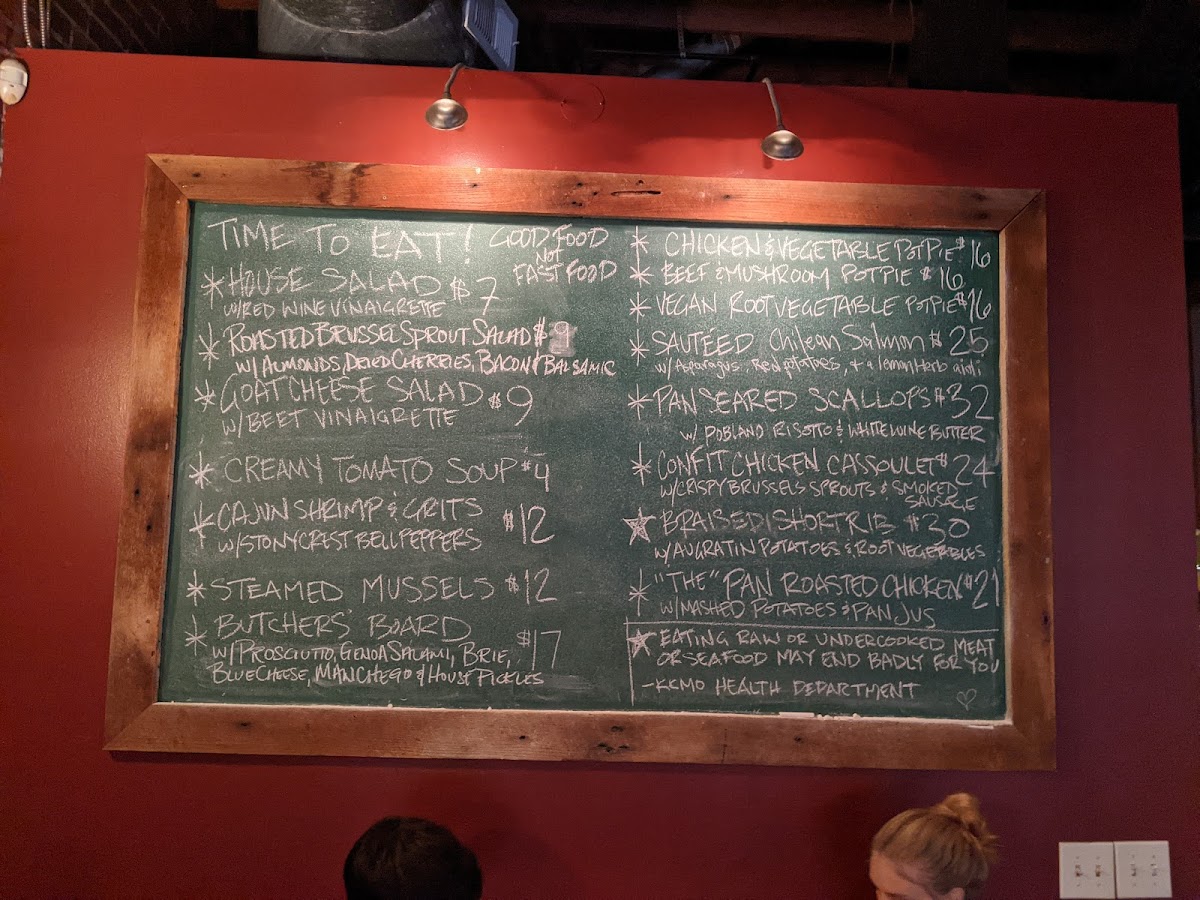 TIME TO EAT!
GOOD FOOD
NOT
FAST FOOD
* HOUSE SALAD $7
W/RED WINE VINAIGRETTE
* ROASTED BRUSSEL SPROUT SALAD $9
W/ALMONDS, DRIED CHERRIES, BACON/BALSAMIC
* GOAT CHEESE SALAD $9
W/BEET VINAIGRETTE
* CREAMY TOMATO SOUP $4
* CAJUN SHRIMP & GRITS $12
W/STONYCREST BELL PEPPERS
* STEAMED MUSSELS $12
* BUTCHERS' BOARD $17
W/PROSCIUTTO, GENOA SALAMI, BRIE,
BLUE CHEESE, MANCHEGO & HOUSE PICKLES
* CHICKEN & VEGETABLE POTPIE $16
* BEEF & MUSHROOM POTPIE $16
* VEGAN ROOT VEGETABLE POTPIE $16
* SAUTÉED Chilean Salmon $25
w/ Asparagus, Red potatoes, + a lemon Herb aioli
* PAN SEARED SCALLOPS $32
W/ POBLANO RISOTTO & WHITE WINE BUTTER
* CONFIT CHICKEN CASSOULET $24
W/CRISPY BRUSSELS SPROUTS & SMOKED
SAUSAGE
☆ BRAISED SHORT RIB $30
W/AUGRATIN POTATOES & ROOT VEGETABLES
* "THE" PAN ROASTED CHICKEN $21
W/MASHED POTATOES & PAN JUS
☆ EATING RAW OR UNDERCOOKED MEAT
OR SEAFOOD MAY END BADLY FOR YOU
-KCMO HEALTH DEPARTMENT ♡